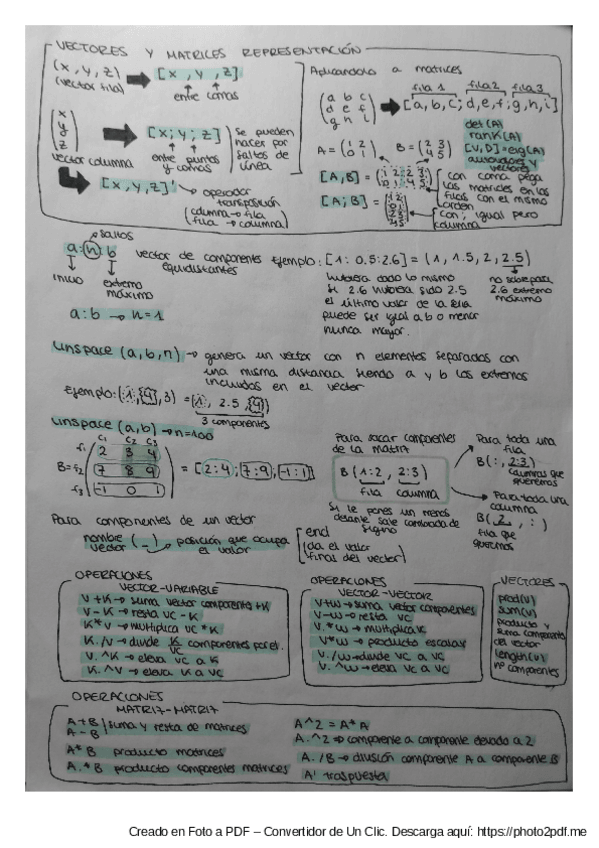 VECTORES Y MATRICES REPRESENTACIÓN
(x, y, z) → [x, y, z]
(vector fila)
entre comas
(x y z) → [x; y; z]
vector columna
entre puntos y comas
Se pueden
hacer por
saltos de
línea
[x, y, z]' → operador
transposición
(columna → fila
fila → columna)
Aplicándolo a matrices
fila 1 fila 2 fila 3
(a b c
d e f
g h i) → [a, b, c; d, e, f; g, h, i]
det(A)
rank(A)
[V, D] = eig(A)
autovalores y
vectores
A = (1 2
0 1) B = (2 3
4 5)
[A, B] =
con coma pega
las matrices en las
filas con el mismo
orden
[A; B] =
con ; igual pero
columna
saltos
a:n:b vector de componentes
equidistantes
inicio extremo
máximo
a:b → n=1
Ejemplo: [1: 0.5: 2.6] = (1, 1.5, 2, 2.5)
hubiera dado lo mismo
si 2.6 hubiera sido 2.5
el último valor de la serie
puede ser igual a b o menor
nunca mayor.
no sobrepasa
2.6 extremo
máximo
linspace (a, b, n) → genera un vector con n elementos separados con
una misma distancia siendo a y b los extremos
incluidos en el vector
Ejemplo: (1, 4, 3) = (1, 2.5, 4)
3 componentes
linspace (a, b) → n=100
C1 C2 C3
f1 2 3 4
B = f2 7 8 9 = [2:4; 7:9; -1:1]
f3 -1 0 1
Para sacar componentes
de la matriz
B (1:2, 2:3)
fila columna
Si le pones un menos
delante sale cambiada de
signo
Para toda una
fila
B(:, 2:3)
columnas que
queremos
Para toda una
columna
B(2, :)
fila que
queremos
Para componentes de un vector
nombre (_) → posición que ocupa
vector el valor
end
(da el valor
final del vector)
OPERACIONES
VECTOR-VARIABLE
V+K → suma vector componente +K
V-K → resta vc - K
K*V → multiplica vc * K
K./V → divide K componentes por el vc
V.^K → eleva vc a K
K.^V → eleva K a vc
OPERACIONES
VECTOR-VECTOR
V+W → suma vector componentes
V-W → resta vc
V.*W → multiplica vc
V*W → producto escalar
V./W → divide vc a vc
V.^W → eleva vc a vc
VECTORES
prod(v)
sum(v)
producto y
suma componentes
del vector
length(v)
nº componentes
OPERACIONES
MATRIZ-MATRIZ
A+B
A-B suma y resta de matrices
A*B producto matrices
A.*B producto componentes matrices
A^2 = A*A
A.^2 → componente a componente elevado a 2
A./B → división componente A a componente B
A' traspuesta
Creado en Foto a PDF – Convertidor de Un Clic. Descarga aquí: https://photo2pdf.me